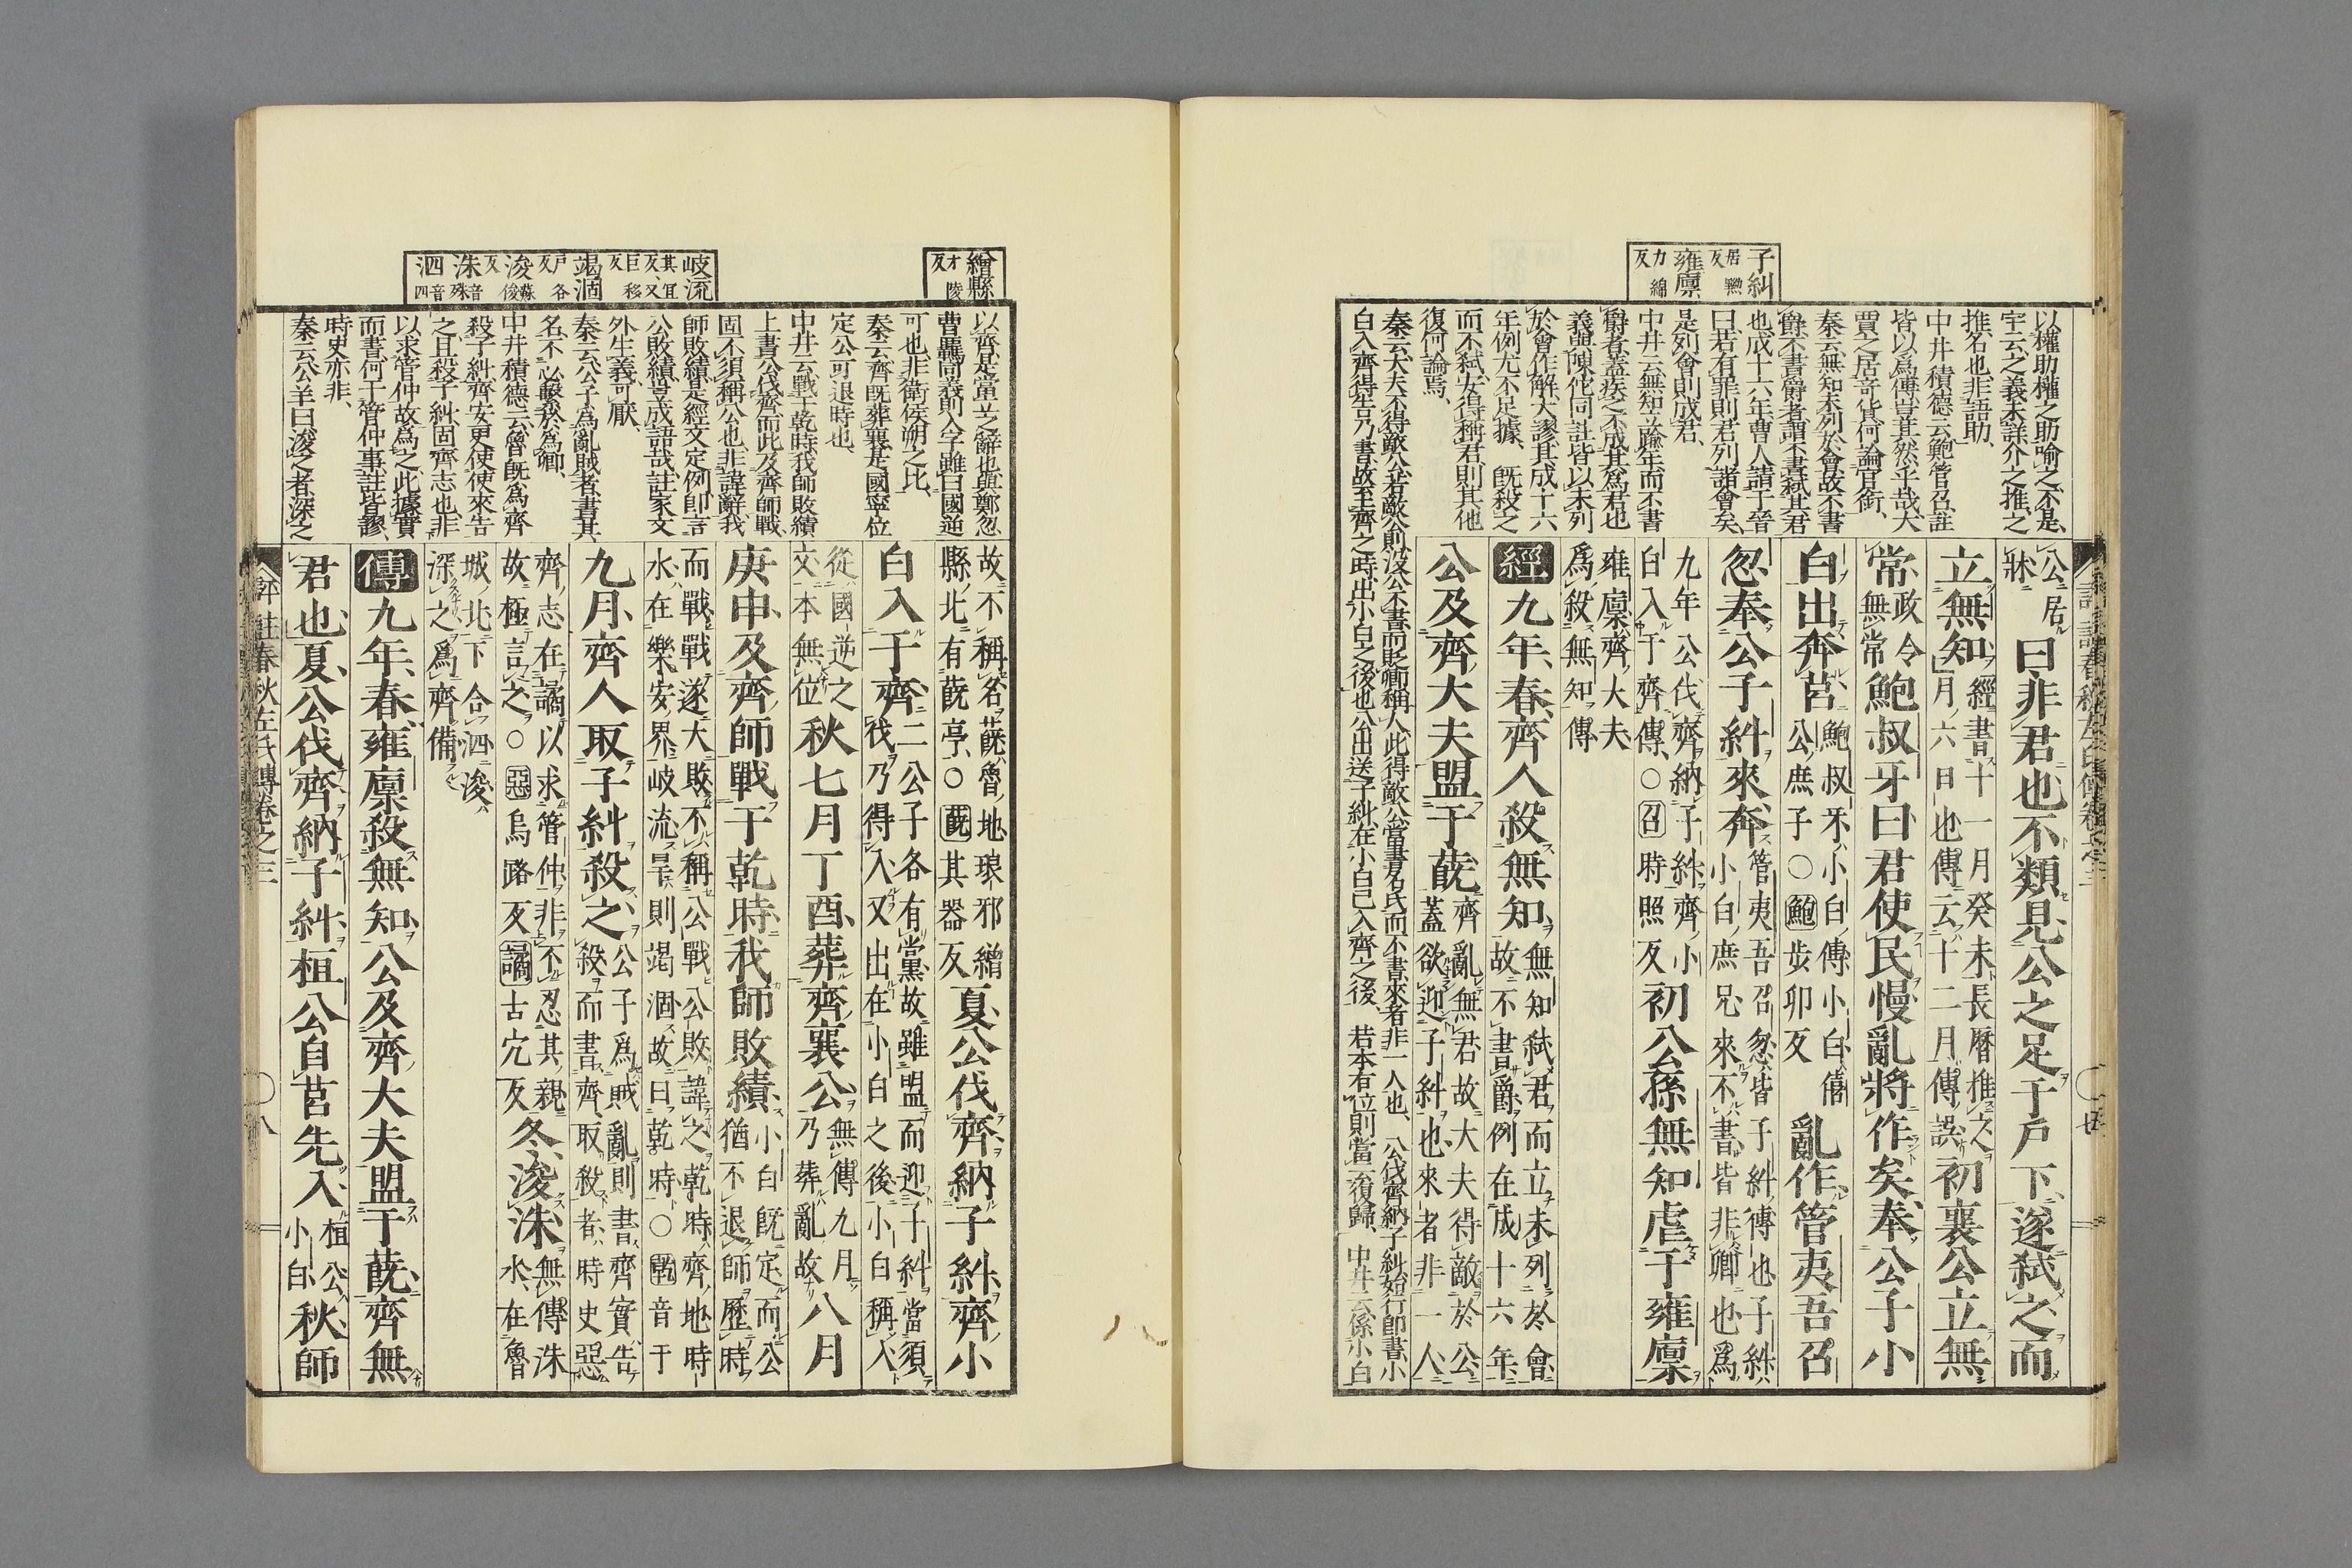 子糾
居黝反
雍廩
力錦反
以權助權之助喻之不是、
宇云之義未詳介之推之
推名也非語助、
中井積德云鮑管召註
皆以爲傳豈其然乎哉大
賈之居奇貨何論官銜、
秦云無知未列於會故不書
爵不書爵者謂不書弑其君
也成十六年曹人請于晉
曰若有罪則君列諸會矣
是列會則成君、
中井云無知立踰年而不書
爵者蓋疾之不成其爲君也
義與陳佗同註皆以未列
於會作解大謬其成十六
年例尤不足據、既殺之
而不弑安得稱君則其他
復何論焉、
秦云大夫不得敵公若敵公則沒公不書而貶卿稱人此得敵公當書名氏而不書來者非一人也、公伐齊納子糾始行即書小
白入齊得告乃書故至齊之時出小白之後也公出送子糾在小白已入齊之後、若本有位則當云復歸、中井云係小白
公居
牀 曰非君也不類見公之足于戶下遂弑之而
立無知 經書十一月癸未長曆推之
月六日也傳云十二月傳誤 初襄公立無
常 政令
無常 鮑叔牙曰君使民慢亂將作矣奉公子小
白出奔莒 鮑叔牙小白傅小白僖
公庶子○鮑步卯反 亂作管夷吾召
忽奉公子糾來奔 管夷吾召忽皆子糾傅也子糾
小白庶兄來不書皆非卿也爲
九年公伐齊納子糾齊小
白入于齊傳○召時照反 初公孫無知虐于雍廩
雍廩齊大夫
爲殺無知傳
經九年春齊人殺無知 無知弑君而立未列於會
故不書爵例在成十六年
公及齊大夫盟于蔇 齊亂無君故大夫得敵於公
蓋欲迎子糾也來者非一人
繒縣
才陵反
岐流
其宜反又巨移反
竭涸
戶各反
浚
蘇俊反
洙
音殊
泗
音四
以齊是當世之辭也與鄭忽
曹羈同義則入字雖曰國逆
可也非衛侯朔之比、
秦云齊既葬襄是國寧位
定公可退時也、
中井云戰于乾時我師敗績
上書公伐齊而此及齊師戰
固不須稱公也非諱辭我
師敗績是經文定例即言
公敗績豈成語哉註家文
外生義可厭、
秦云公子爲亂賊者書其
名不必繫於爲卿、
中井積德云魯既爲齊
殺子糾齊安更使使來告
之且殺子糾固齊志也非
以求管仲故爲之此據實
而書何干管仲事註皆謬
時史亦非、
秦云公羊曰浚之者深之
故不稱名蔇魯地琅邪繒
縣北有蔇亭○蔇其器反 夏公伐齊納子糾齊小
白入于齊 二公子各有黨故雖盟而迎子糾當須
伐乃得入又出在小白之後小白稱入
從國逆之
文本無位 秋七月丁酉葬齊襄公 無傳九月
乃葬亂故 八月
庚申及齊師戰于乾時我師敗績 小白既定而公
猶不退師歷時
而戰戰遂大敗不稱公戰公敗諱之乾時齊地時
水在樂安界岐流旱則竭涸故曰乾時○乾音干
九月齊人取子糾殺之 公子爲賊亂則書齊實告
殺而書齊取殺者時史惡
齊志在譎以求管仲非不忍其親
故極言之○惡烏路反譎古穴反 冬浚洙 無傳洙
水在魯
城北下合泗浚
深之爲齊備
傳九年春雍廩殺無知公及齊大夫盟于蔇齊無
君也夏公伐齊納子糾桓公自莒先入 桓公
小白 秋師
評註春秋左氏傳卷之三
○八